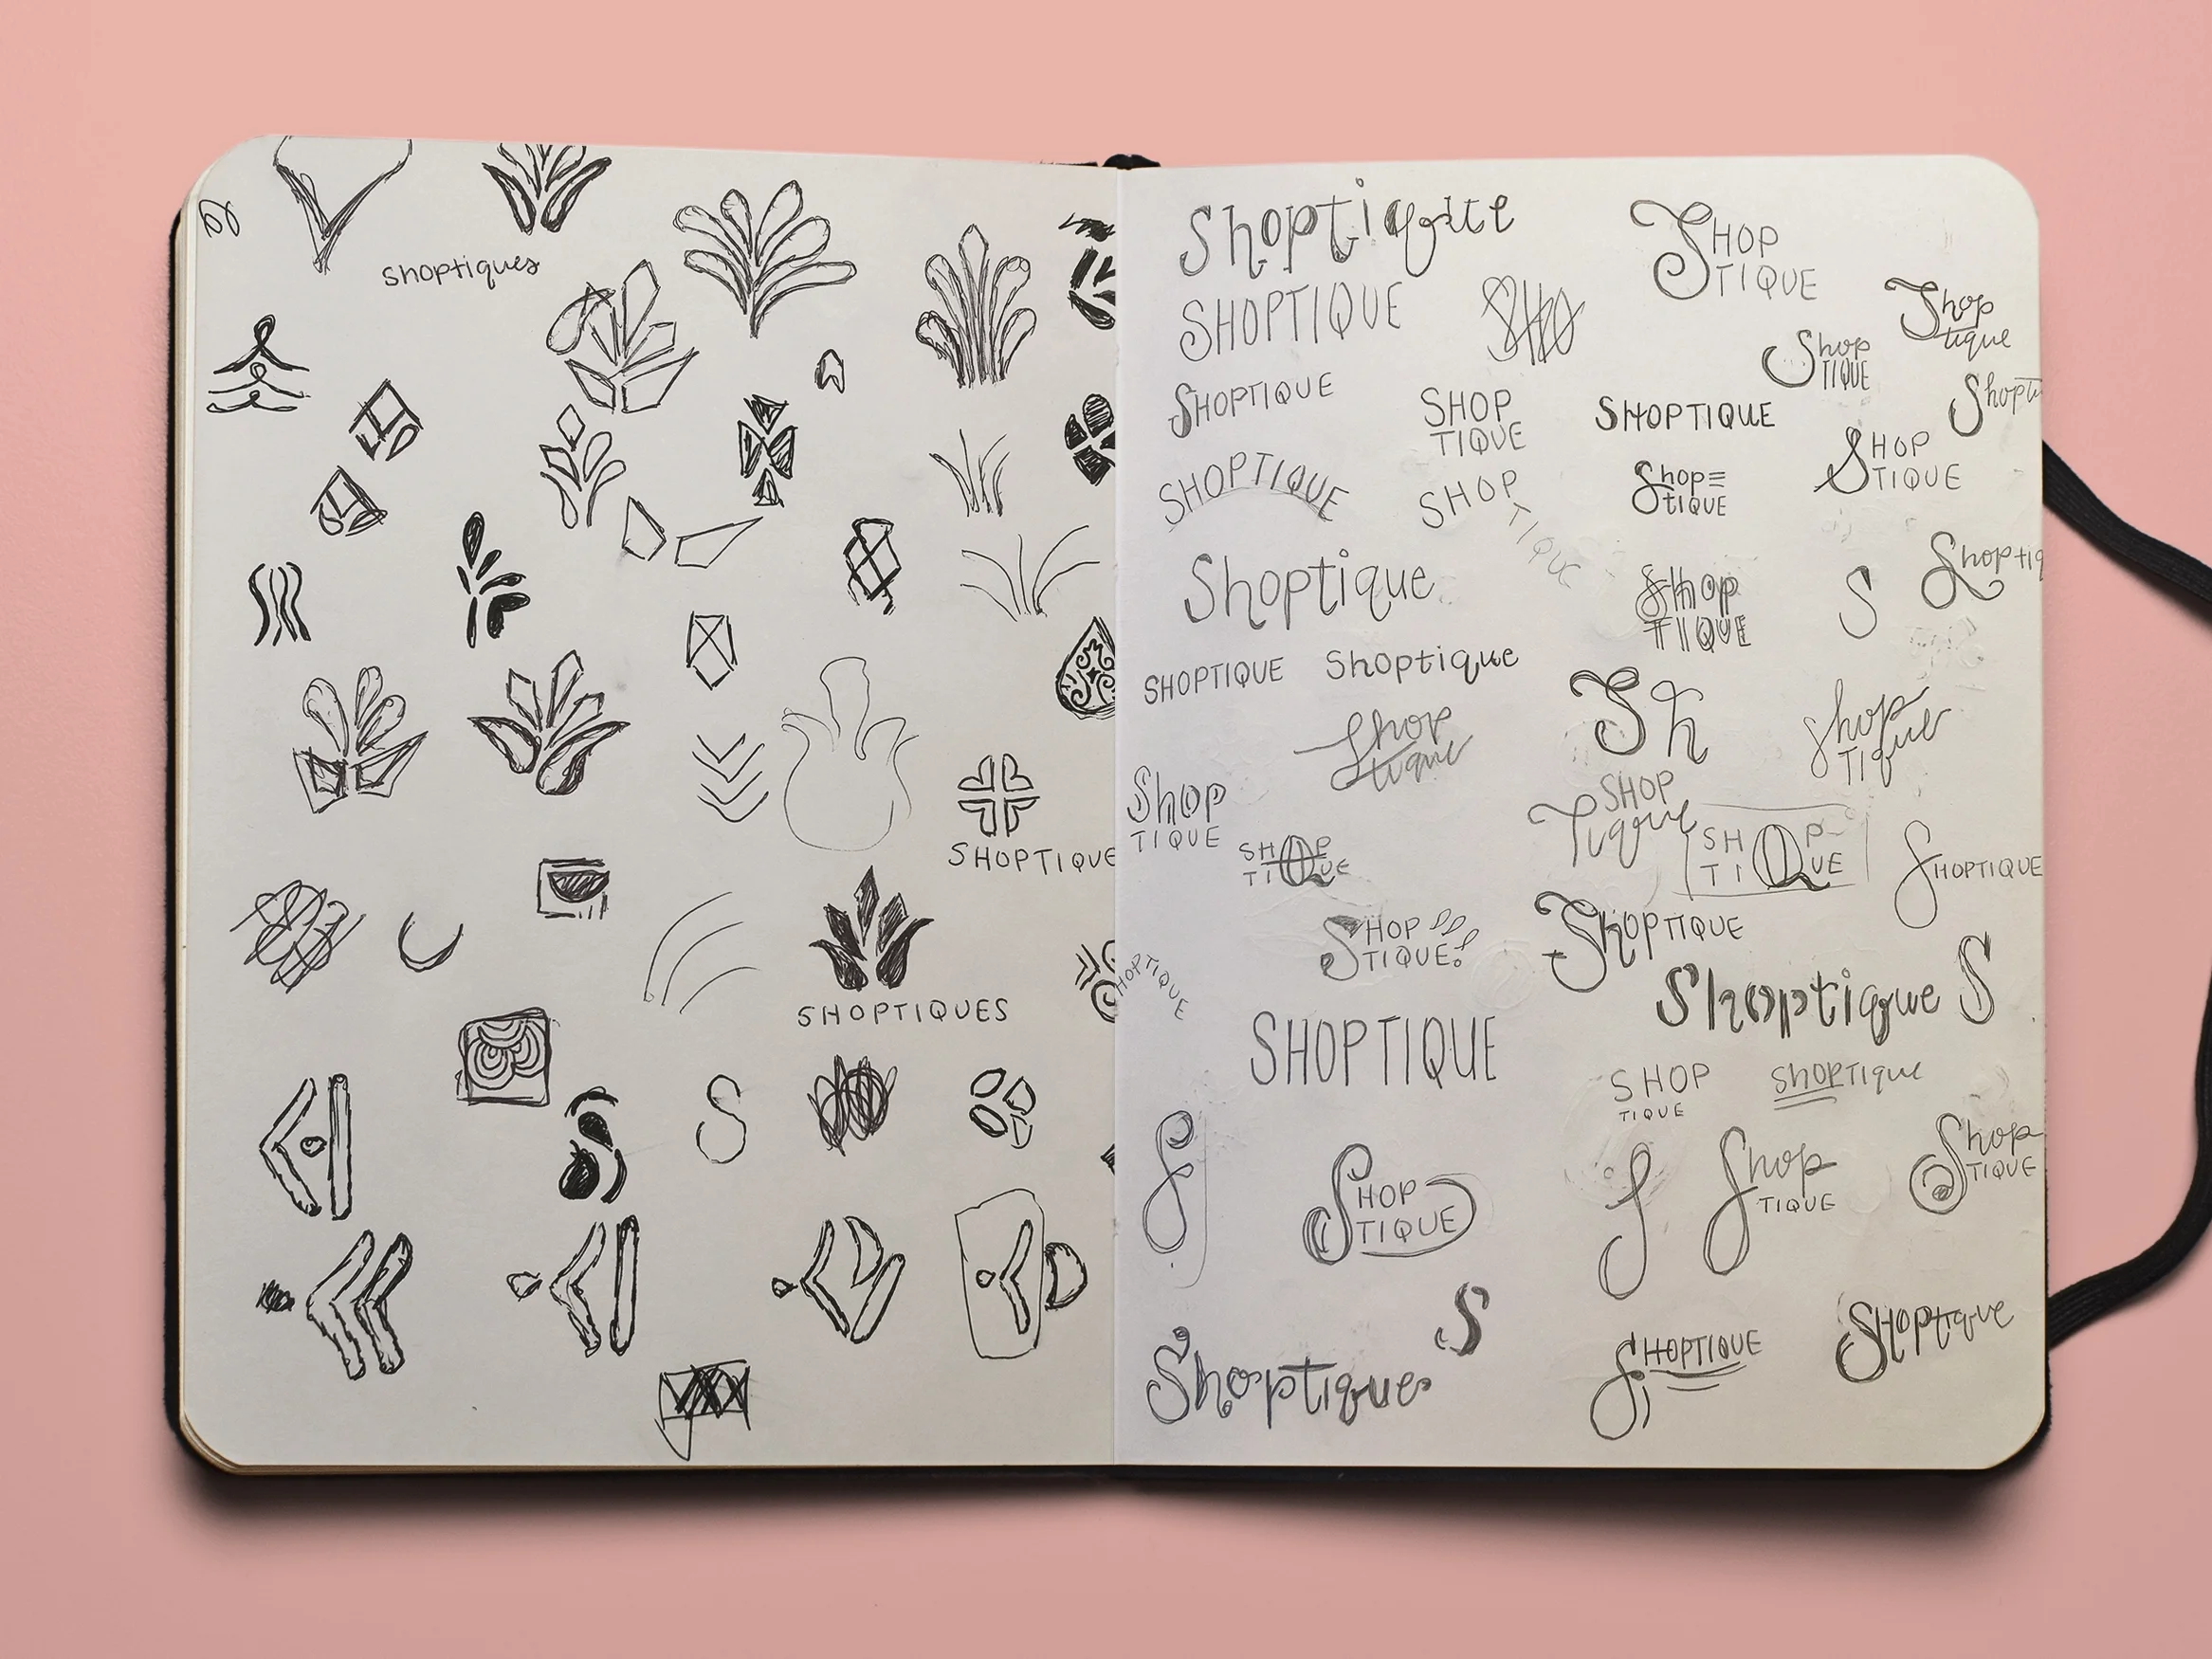 shoptiques
SHOPTIQUE
SHOPTIQUES
S
Shoptique
SHOP
TIQUE
SHOPTIQUE
Sho
Shop
tique
Shop
TIQUE
SHOPTIQUE
SHOP
TIQUE
SHOPTIQUE
Shopti
SHOP
TIQUE
SHOPTIQUE
SHOP
TIQUE
Shop
tIQUE
Shoptique
Shop
TIQUE
S
Shoptiq
SHOPTIQUE
Shoptique
Sh
Shop
tique
Shop
TIque
Shop
TIQUE
SHOP
Tique
SHOP
TIQUE
SHOP
TIQUE
SHOPTIQUE
SHOP
TIQUE
ShopTIQUE
HOPTIQUE
Shoptique
S
SHOPTIQUE
SHOP
TIQUE
SHOPTique
S
SHOP
TIQUE
S
Shop
TIQUE
Shop
TIQUE
S
Shoptique
SHOPTIQUE
SHoptique